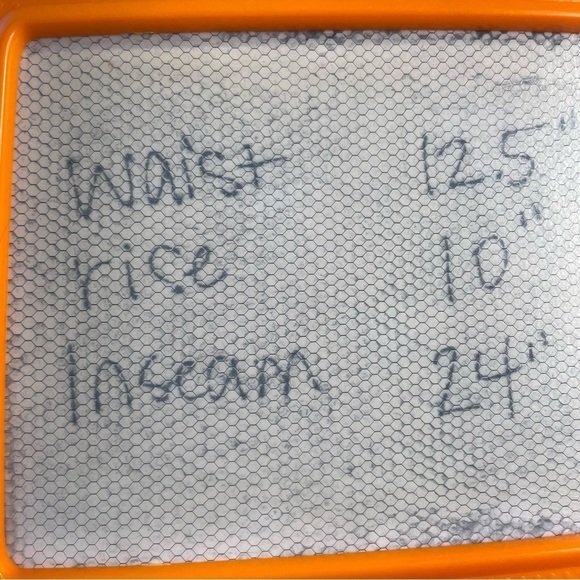 Waist 12.5"
rice 10"
Inseam 24"